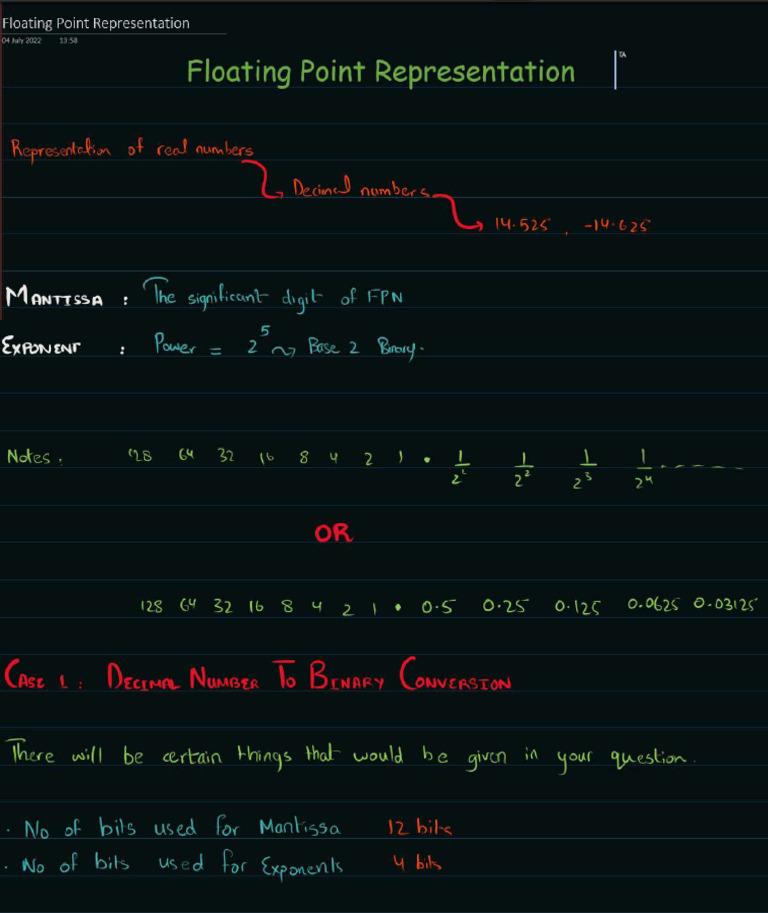 Floating Point Representation
04 July 2022 13:58
Floating Point Representation TA
Representation of real numbers
Decimal numbers
14.525 , -14.625
MANTISSA : The significant digit of FPN
EXPONENT : Power = 2^5 ⤳ Base 2 Binary.
Notes : 128 64 32 16 8 4 2 1 • 1/2^1 1/2^2 1/2^3 1/2^4 .------
OR
128 64 32 16 8 4 2 1 • 0.5 0.25 0.125 0.0625 0.03125
CASE 1 : DECIMAL NUMBER TO BINARY CONVERSION
There will be certain things that would be given in your question.
. No of bits used for Mantissa 12 bits
. No of bits used for Exponents 4 bits